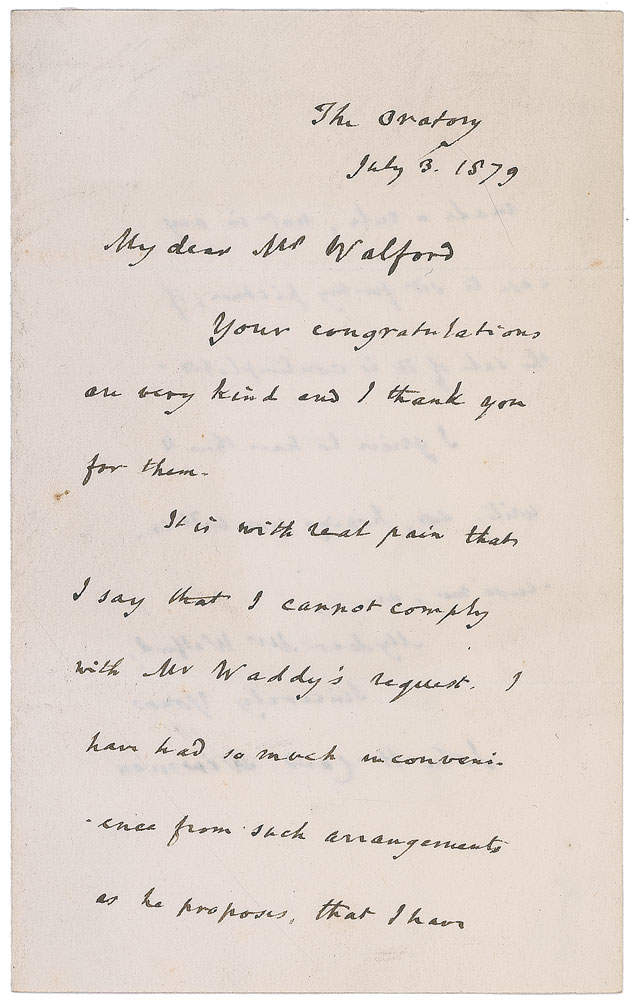 The Oratory
July 3. 1879
My dear Mr Walford
Your congratulations
are very kind and I thank you
for them.
It is with real pain that
I say that I cannot comply
with Mr Waddy's request. I
have had so much inconveni-
-ence from such arrangements
as he proposes, that I have